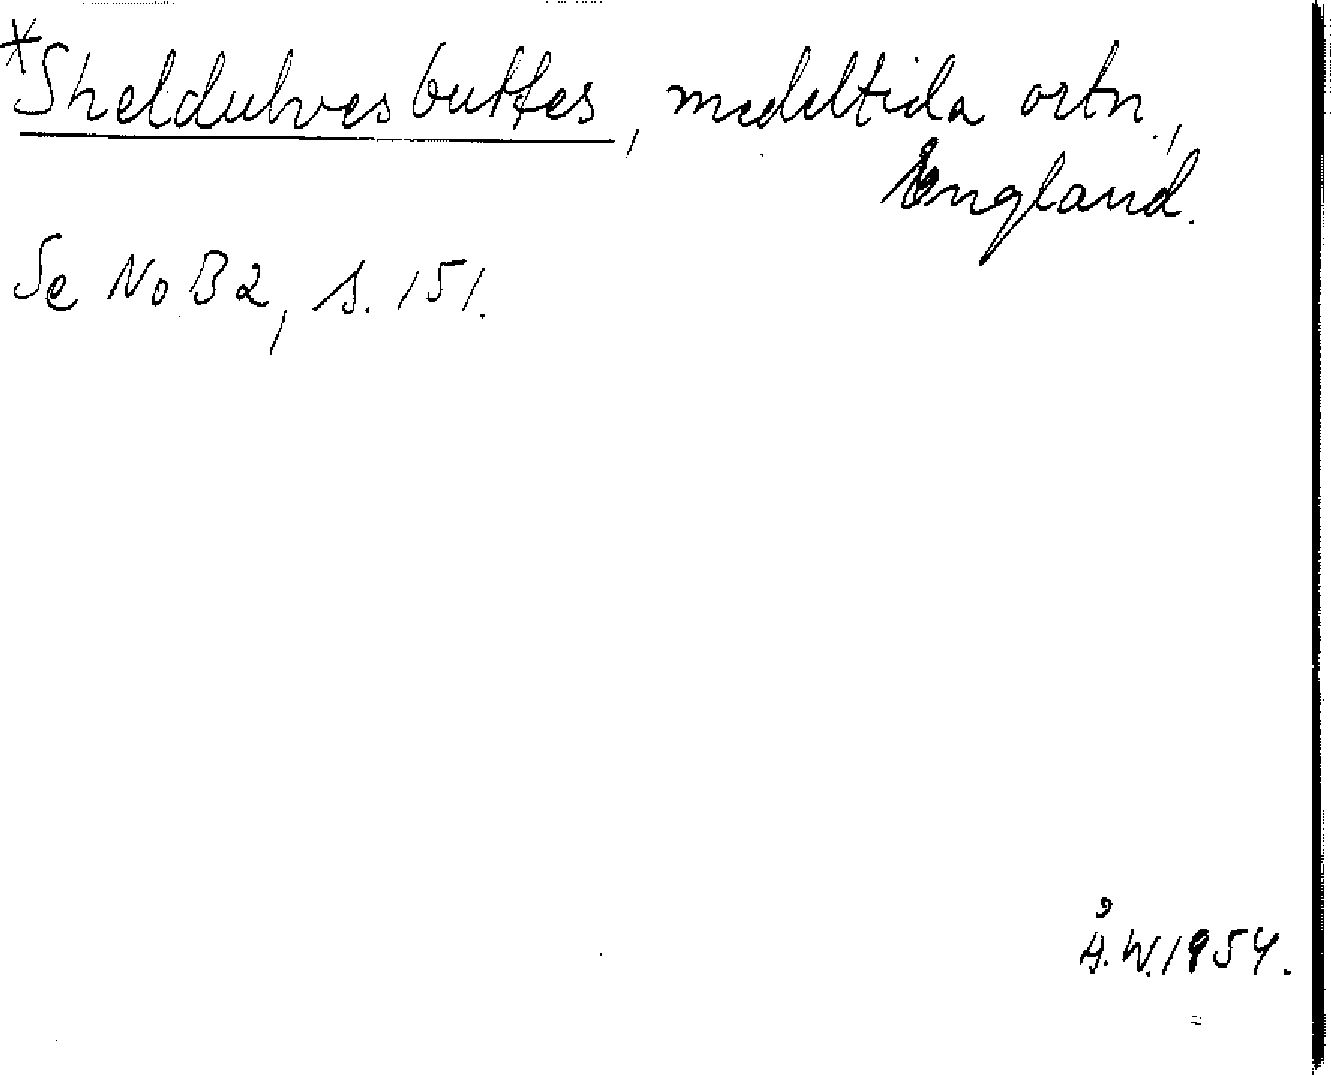 *Sheldulvesbuttes, medeltida ortn.,
England.
Se NoB 2, s. 151.
Å.W. 1954.